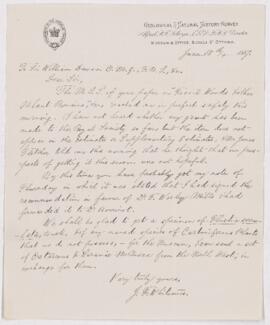 GEOLOGICAL & NATURAL HISTORY SURVEY
MUSEUM & OFFICE, SUSSEX ST OTTAWA.
June 18th, 1887.
To Sir William Dawson C.M.G., F.R.S., &c.
Dear Sir,
The M.S.S. of your paper on Fossil Woods &
reached me in perfect safety this
morning. I have not heard whether any grant has been
made to the Royal Society so far but the item does not
appear in the Estimates or Supplementary Estimates.
told me that he thought that our pros-
pects of getting it this session was not hopeful.
By this time you have probably got my note of
Thursday in which it was stated that I had signed the
recommendation in favour of Dr T. Wesley Mills & had
forwarded it to
We shall be glad to get a specimen of
or any named species of Carboniferous Plants
that we do not possess, for the Museum, & can send a set
of Cretaceous & Laramie from the North West, in
exchange for them.
Very truly yours,
J. F. Whiteaves.